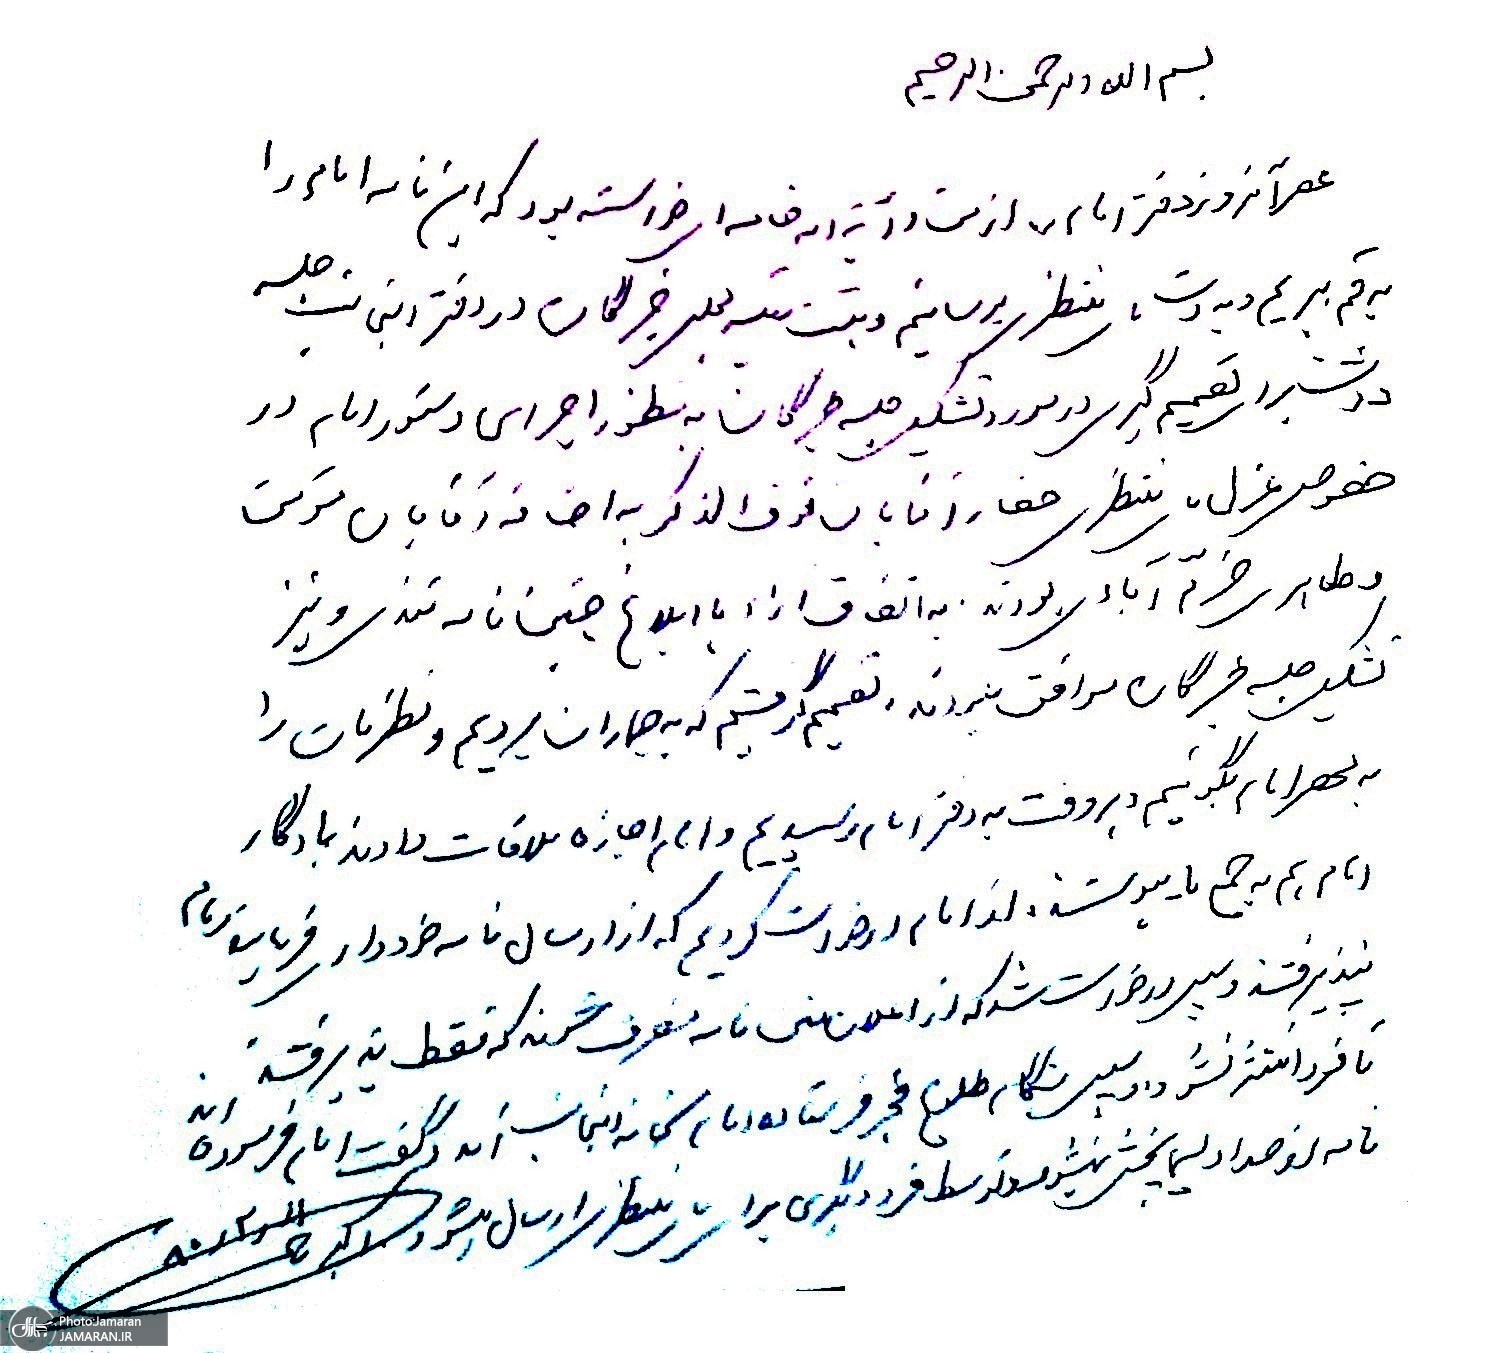 بسم الله الرحمن الرحیم
عصر آنروز دفتر امام، از من و آیة الله خامنه‌ای خواسته بود که این نامه امام را
به قم ببریم و به دست آ. منتظری برسانیم و هیئت رئیسه مجلس خبرگان در دفتر اینجانب جلسه
داشت برای تصمیم گیری در مورد تشکیل جلسه خبرگان به منظور اجرای دستور امام در
خصوص عزل آ. منتظری حضار آقایان فوق الذکر به اضافه آقایان
و طاهری خرّم آبادی بودند. به اتفاق آراء با ابلاغ چنین نامه تندی و نیز
تشکیل جلسه خبرگان موافق نبودند، تصمیم گرفتیم که به جماران برویم و نظرمان را
به محضر امام بگوئیم دیر وقت به دفتر امام رسیدیم و امام اجازه ملاقات دادند یادگار
امام هم به جمع ما پیوستند، از امام درخواست کردیم که از ارسال نامه خودداری فرمایند امام
نپذیرفتند و سپس درخواست شد که از اعلان متن نامه منصرف شوند که فقط پذیرفتند
تا فردا منتشر نشود و سپس هنگام طلوع فجر فرستاده امام به خانه اینجانب آمد و گفت امام فرموده‌اند
نامه از صدا و سیما پخش نمیشود و توسط فرد دیگری برای آ. منتظری ارسال میشود. اکبر هاشمی
Photo:Jamaran
JAMARAN.IR